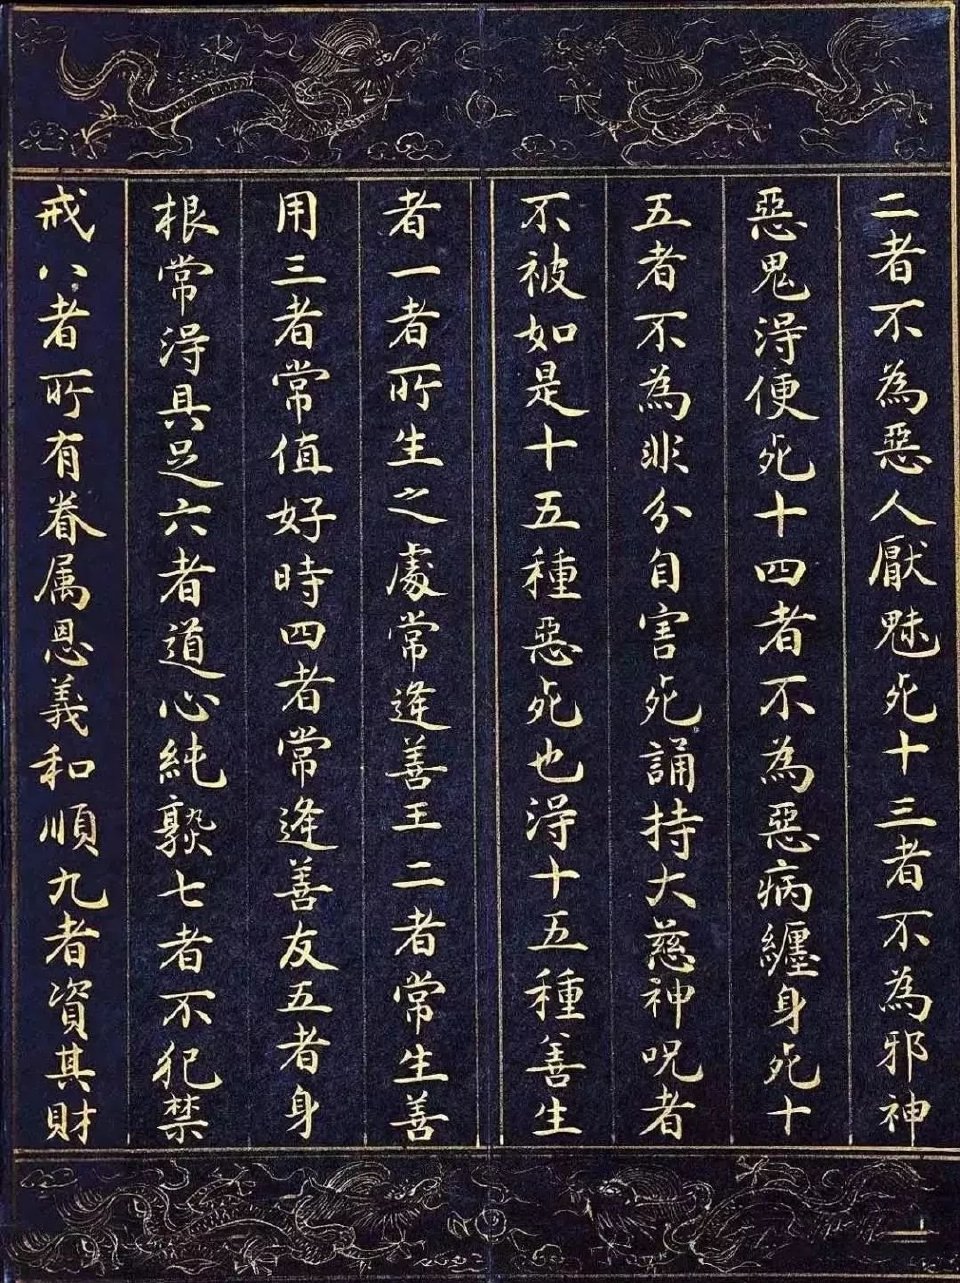 二者不為惡人厭魅死十三者不為邪神
惡鬼得便死十四者不為惡病纏身死十
五者不為非分自害死誦持大慈神呪者
不被如是十五種惡死也得十五種善生
者一者所生之處常逢善王二者常生善
用三者常值好時四者常逢善友五者身
根常得具足六者道心純熟七者不犯禁
戒八者所有眷属恩義和順九者資其財